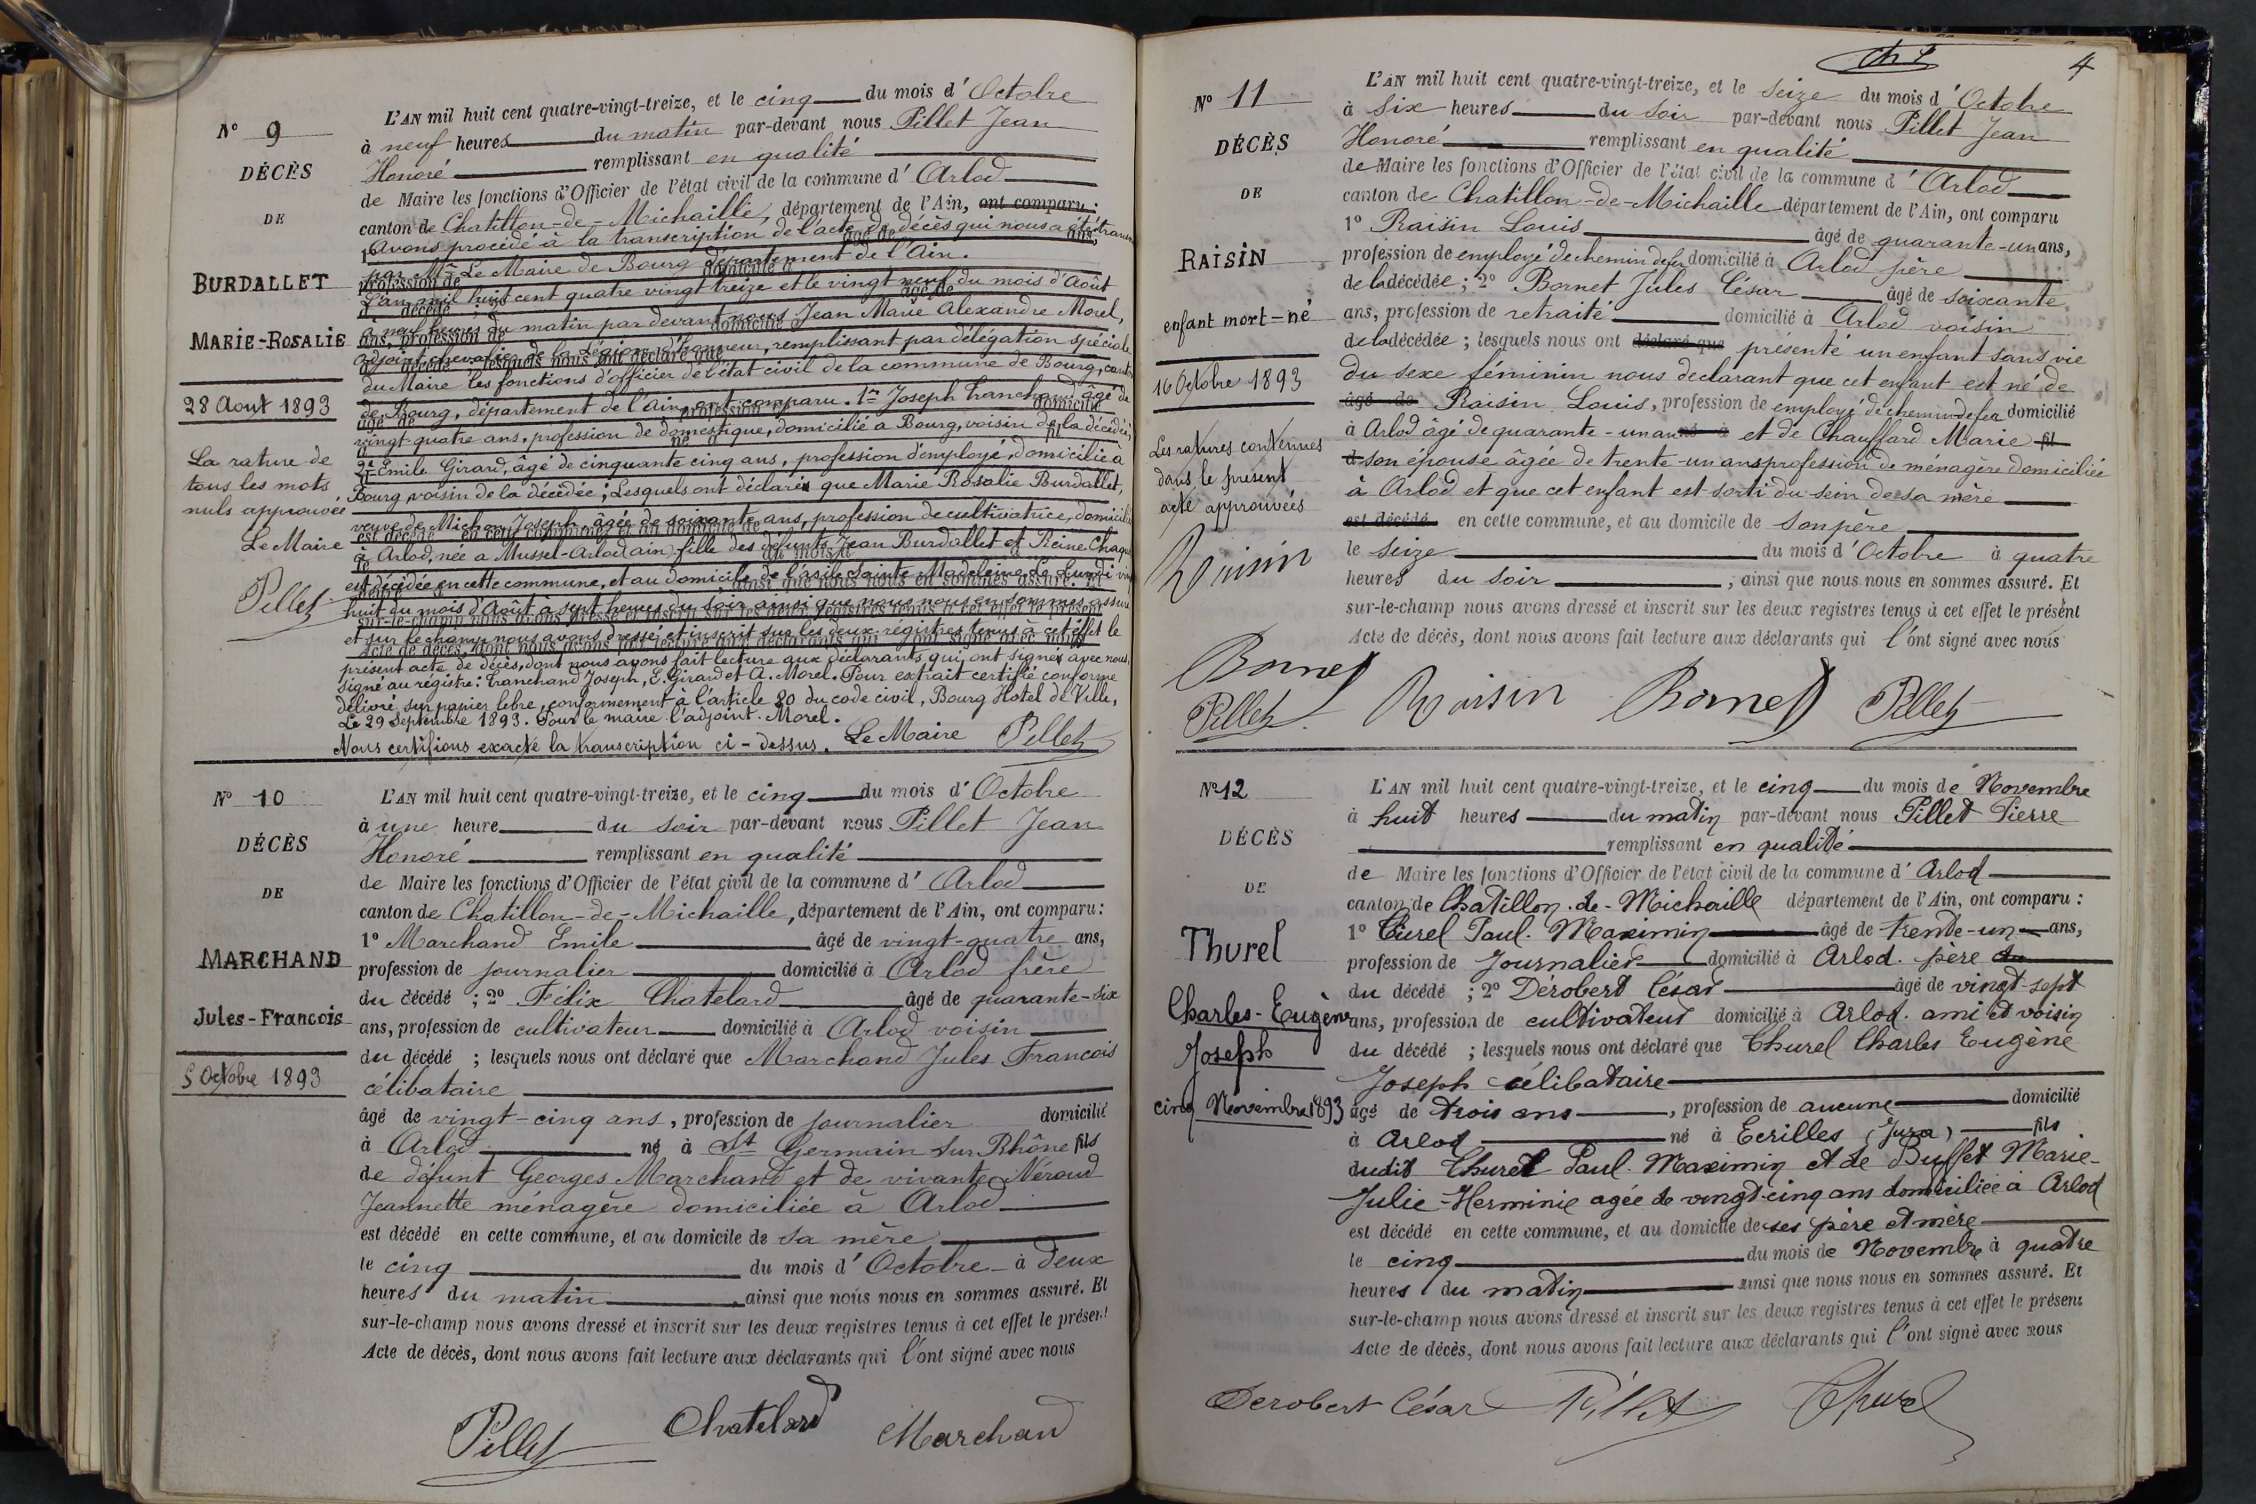 N° 9
DÉCÈS
DE
BURDALLET
MARIE-ROSALIE
28 Aout 1893
La rature de
tous les mots
nuls approuvée
Le Maire
Pillet
L'AN mil huit cent quatre-vingt-treize, et le cinq du mois d'Octobre
à neuf heures du matin par-devant nous Pillet Jean
Honoré remplissant en qualité
de Maire les fonctions d'Officier de l'état civil de la commune d'Arlod
canton de Chatillon-de-Michaille, département de l'Ain, ont comparu:
Avons procédé à la transcription de l'acte de décès qui nous a été
par Mr Le Maire de Bourg département de l'Ain.
L'an mil huit cent quatre vingt treize et le vingt neuf du mois d'Août
à neuf heures du matin par devant nous Jean Marie Alexandre Morel,
adjoint chevalier de la Légion d'honneur, remplissant par délégation spéciale
du Maire les fonctions d'officier de l'état civil de la commune de Bourg, canton
de Bourg, département de l'ain, ont comparu. 1er Joseph Tranchand âgé de
vingt-quatre ans, profession de domestique, domicilié a Bourg, voisin de la décédée,
2e Emile Girard, âgé de cinquante cinq ans, profession d'employé, domicilié a
Bourg voisin de la décédée; Lesquels ont déclaré que Marie Rosalie Burdallet,
veuve de Michon Joseph, âgée de soixante ans, profession de cultivatrice, domiciliée
à Arlod, née a Mussel-Arlod (ain) fille des défunts Jean Burdallet et Reine
est décédée en cette commune, et au domicile de l'asile Sainte Madeleine Le Lundi vingt
huit du mois d'Août à sept heures du soir ainsi que nous nous en sommes assuré
et sur le champ nous avons dressé et inscrit sur les deux registres tenus à cet effet le
présent acte de décès, dont nous avons fait lecture aux déclarants qui ont signés avec nous,
signé au régistre: Tranchand Joseph, E. Girard et A. Morel. Pour extrait certifié conforme
délivré sur papier lebre, conformement à l'article 80 du code civil, Bourg Hotel de Ville,
Le 29 Septembre 1893. Pour le maire l'adjoint. Morel.
Nous certifions exacte la transcription ci-dessus. Le Maire Pillet
N° 10
DÉCÈS
DE
MARCHAND
Jules-Francois
5 Octobre 1893
L'AN mil huit cent quatre-vingt-treize, et le cinq du mois d'Octobre
à une heure du soir par-devant nous Pillet Jean
Honoré remplissant en qualité
de Maire les fonctions d'Officier de l'état civil de la commune d'Arlod
canton de Chatillon-de-Michaille, département de l'Ain, ont comparu:
1° Marchand Emile âgé de vingt-quatre ans,
profession de journalier domicilié à Arlod frère
du décédé ; 2° Félix Chatelard âgé de quarante-six
ans, profession de cultivateur domicilié à Arlod voisin
du décédé ; lesquels nous ont déclaré que Marchand Jules Francois
célibataire
âgé de vingt-cinq ans, profession de journalier domicilié
à Arlod né à St Germain sur Rhône fils
de défunt Georges Marchand et de vivante Néroud
Jeannette ménagère domiciliée à Arlod
est décédé en cette commune, et au domicile de sa mère
le cinq du mois d'Octobre à deux
heures du matin ainsi que nous nous en sommes assuré. Et
sur-le-champ nous avons dressé et inscrit sur les deux registres tenus à cet effet le présent
Acte de décès, dont nous avons fait lecture aux déclarants qui l'ont signé avec nous
Pillet Chatelard Marchand
4
N° 11
DÉCÈS
DE
RAISIN
enfant mort-né
16 Octobre 1893
Les ratures contenues
dans le présent
acte approuvées
Raisin
Bornet
Pillet
L'AN mil huit cent quatre-vingt-treize, et le seize du mois d'Octobre
à six heures du soir par-devant nous Pillet Jean
Honoré remplissant en qualité
de Maire les fonctions d'Officier de l'état civil de la commune d'Arlod
canton de Chatillon-de-Michaille département de l'Ain, ont comparu
1° Raisin Louis âgé de quarante-un ans,
profession de employé de chemin de fer domicilié à Arlod père
de la décédée ; 2° Bornet Jules César âgé de soixante
ans, profession de retraité domicilié à Arlod voisin
de la décédée ; lesquels nous ont déclaré que présenté un enfant sans vie
du sexe féminin nous declarant que cet enfant est né de
âgé de Raisin Louis, profession de employé de chemin de fer domicilié
à Arlod âgé de quarante-un ans né à et de Chauffard Marie fil
d son épouse âgée de trente-un ans profession de ménagère domiciliée
à Arlod et que cet enfant est sorti du sein de sa mère
est décédé en cette commune, et au domicile de son père
le seize du mois d'Octobre à quatre
heures du soir ; ainsi que nous nous en sommes assuré. Et
sur-le-champ nous avons dressé et inscrit sur les deux registres tenus à cet effet le présent
Acte de décès, dont nous avons fait lecture aux déclarants qui l'ont signé avec nous
Raisin Bornet Pillet
N° 12
DÉCÈS
DE
Thurel
Charles-Eugène
Joseph
cinq Novembre 1893
L'AN mil huit cent quatre-vingt-treize, et le cinq du mois de Novembre
à huit heures du matin par-devant nous Pillet Pierre
remplissant en qualité
de Maire les fonctions d'Officier de l'état civil de la commune d'Arlod
canton de Chatillon-de-Michaille département de l'Ain, ont comparu :
1° Thurel Paul-Maximin âgé de trente-un ans,
profession de Journalier domicilié à Arlod. père du
du décédé ; 2° Dérobert César âgé de vingt-sept
ans, profession de cultivateur domicilié à Arlod. ami et voisin
du décédé ; lesquels nous ont déclaré que Thurel Charles Eugène
Joseph célibataire
âgé de trois ans, profession de aucune domicilié
à Arlod né à Ecrilles (Jura) fils
dudit Thurel Paul-Maximin et de Buffet Marie-
Julie-Herminie agée de vingt-cinq ans domiciliée à Arlod
est décédé en cette commune, et au domicile de ses père et mère
le cinq du mois de Novembre à quatre
heures du matin ainsi que nous nous en sommes assuré. Et
sur-le-champ nous avons dressé et inscrit sur les deux registres tenus à cet effet le présent
Acte de décès, dont nous avons fait lecture aux déclarants qui l'ont signé avec nous
Derobert César Pillet Thurel